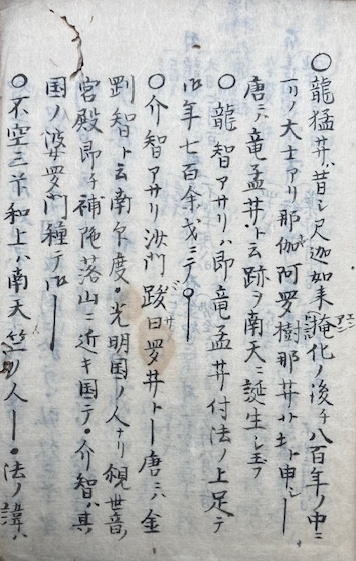 〇龍猛井ハ昔シ尺迦如来掩化ノ後チ八百年ノ中ニ
一リノ大士アリ那伽阿罗樹那井サト申シ
唐ニハ竜孟井ト云跡ヲ南天ニ誕生シ玉フ
〇龍智アサリハ即竜孟井付法ノ上足テ
御年七百余戈ニテ〇
〇介智アサリ沙門跋曰罗井ト 唐ニハ金
剛智ト云南尓度。光明国ノ人ナリ観世音ノ
宮殿即チ補陁落山ニ近キ国テ。介智ハ其
国ノ婆罗門種テ御
〇不空三蔵和上ハ南天竺ノ人 。法ノ諱ハ